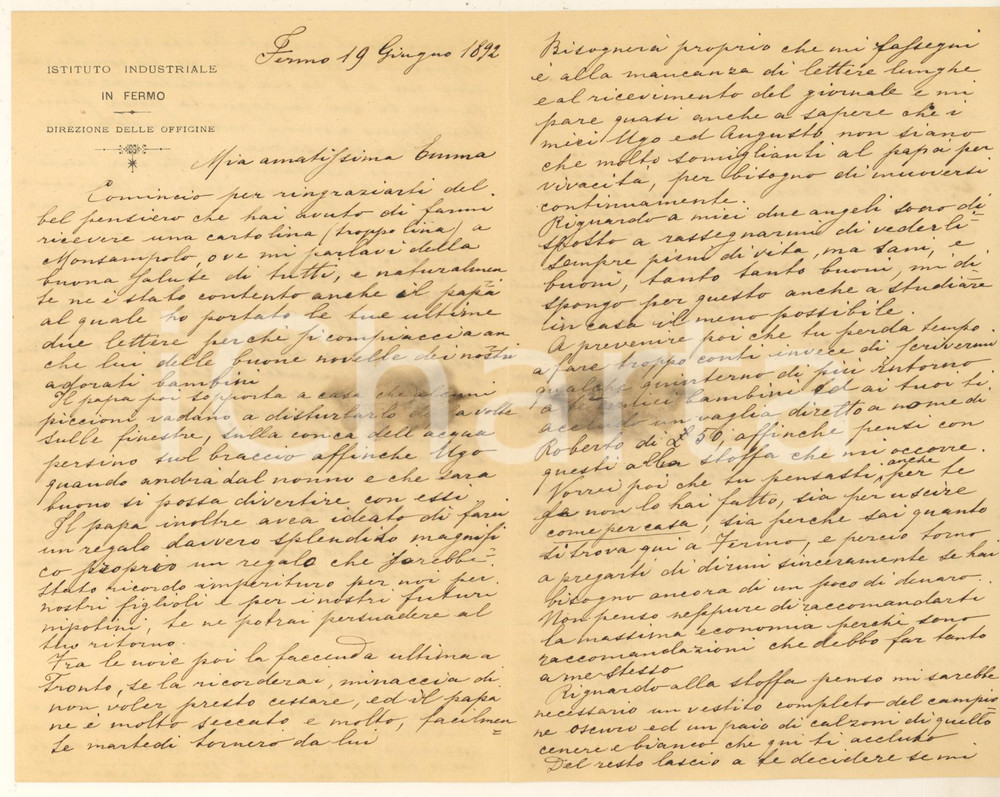 Fermo 19 Giugno 1892
ISTITUTO INDUSTRIALE
IN FERMO
DIREZIONE DELLE OFFICINE
Mia amatissima Emma
Comincio per ringraziarti del
bel pensiero che hai avuto di farmi
ricevere una cartolina (troppo lina) a
Monsampolo, ove mi parlavi della
buona salute di tutti, e naturalmen
te ne è stato contento anche il papà
al quale ho portato le tue ultime
due lettere perche si compiaccia an
che lui delle buone novelle dei nostri
adorati bambini
Il papa poi sopporta a casa che alcuni
piccioni vadano a disturbarlo delle volte
sulle finestre, sulla conca dell'acqua
persino sul braccio affinche Ugo
quando andrà dal nonno e che sarà
buono si possa divertire con essi
Il papa inoltre avea ideato di farci
un regalo davvero splendido magnifi
co proprio un regalo che sarebbe
stato ricordo imperituro per noi per
nostri figlioli e per i nostri futuri
nipotini, te ne potrai persuadere al
tuo ritorno.
Fra le noie poi la faccenda ultima a
Tronto, se la ricorderai, minaccia di
non voler presto cessare, ed il papa
ne è molto seccato e molto, facilmen
te martedi tornerò da lui
Bisognerà proprio che mi rassegni
e alla mancanza di lettere lunghe
e al ricevimento del giornale e mi
pare quasi anche a sapere che i
miei Ugo ed Augusto non siano
che molto somiglianti al papà per
vivacità, per bisogno di muoversi
continuamente.
Riguardo a miei due angeli sono di
sposto a rassegnarmi di vederli
sempre pieni di vita, ma sani, e
buoni, tanto tanto buoni, mi di
spongo per questo anche a studiare
in casa il meno possibile.
A prevenire poi che tu perda tempo
a fare troppo conti invece di scrivermi
qualche quinterno di più intorno
a bambini ed ai tuoi ti
accludo un vaglia diretto a nome di
Roberto di £ 50, affinchè pensi con
questi alla stoffa che mi occorre.
Vorrei poi che tu pensasti, anche per te
se non lo hai fatto, sia per uscire
come per casa, sia perche sai quanto
si trova qui a Fermo, e perciò torno
a pregarti di dirmi sinceramente se hai
bisogno ancora di un poco di denaro.
Non penso neppure di raccomandarti
la massima economia perchè sono
raccomandazioni che debbo far tanto
a me stesso
Riguardo alla stoffa penso mi sarebbe
necessario un vestito completo del campio
ne oscuro ed un paio di calzoni di quello
cenere e bianco che qui ti accludo
Del resto lascio a te decidere se mi
iCharta